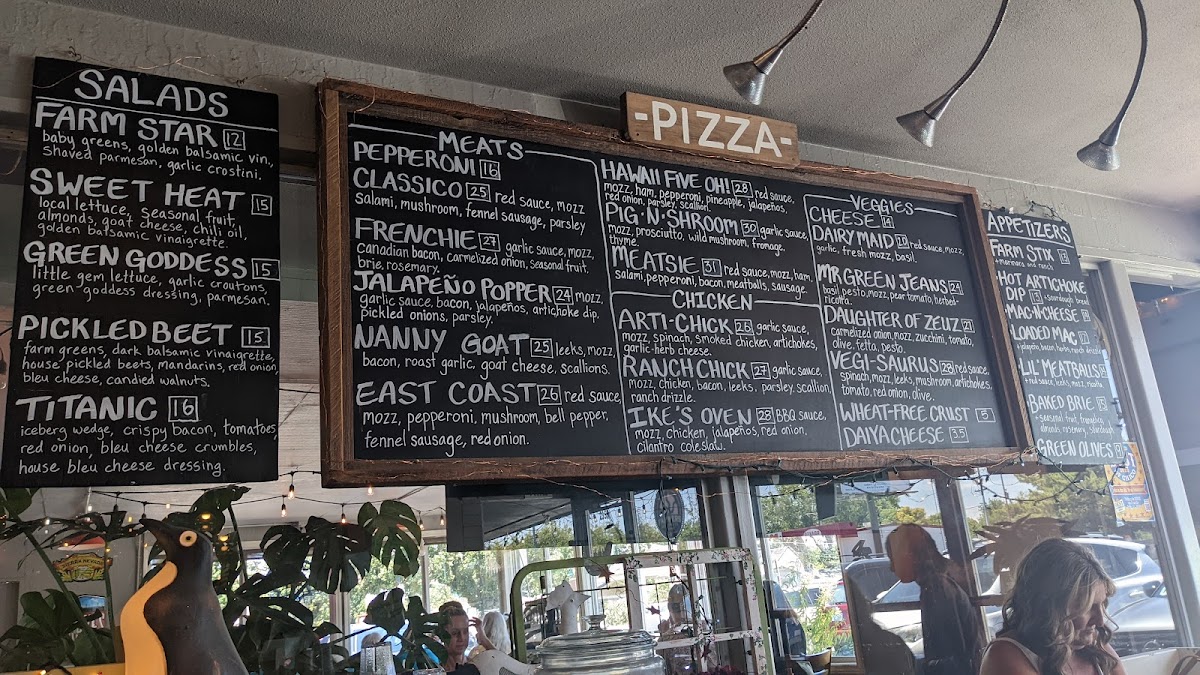 SALADS
FARM STAR 12
baby greens, golden balsamic vin.,
shaved parmesan, garlic crostini.
SWEET HEAT 15
local lettuce, seasonal fruit,
almonds, goat cheese, chili oil,
golden balsamic vinaigrette.
GREEN GODDESS 15
little gem lettuce, garlic croutons,
green goddess dressing, parmesan.
PICKLED BEET 15
farm greens, dark balsamic vinaigrette,
house pickled beets, mandarins, red onion,
bleu cheese, candied walnuts.
TITANIC 16
iceberg wedge, crispy bacon, tomatoes
red onion, bleu cheese crumbles,
house bleu cheese dressing.
-PIZZA-
MEATS
PEPPERONI 16
CLASSICO 25 red sauce, mozz
salami, mushroom, fennel sausage, parsley
FRENCHIE 27 garlic sauce, mozz,
canadian bacon, carmelized onion, seasonal fruit,
brie, rosemary.
JALAPEÑO POPPER 24 mozz,
garlic sauce, bacon, jalapeños, artichoke dip,
pickled onions, parsley.
NANNY GOAT 25 leeks, mozz,
bacon, roast garlic, goat cheese, scallions.
EAST COAST 26 red sauce,
mozz, pepperoni, mushroom, bell pepper,
fennel sausage, red onion.
HAWAII FIVE OH! 28 red sauce,
mozz, ham, pepperoni, pineapple, jalapeños,
red onion, parsley, scallion.
PIG·N·SHROOM 30 garlic sauce,
mozz, prosciutto, wild mushroom, fromage,
thyme.
MEATSIE 31 red sauce, mozz, ham,
salami, pepperoni, bacon, meatballs, sausage.
CHICKEN
ARTI-CHICK 26 garlic sauce,
mozz, spinach, smoked chicken, artichokes,
garlic-herb cheese.
RANCH CHICK 27 garlic sauce,
mozz, chicken, bacon, leeks, parsley, scallion,
ranch drizzle.
IKE'S OVEN 28 BBQ sauce,
mozz, chicken, jalapeños, red onion,
cilantro coleslaw.
VEGGIES
CHEESE 14
DAIRY MAID red sauce, mozz,
garlic, fresh mozz, basil.
MR GREEN JEANS 24
basil pesto, mozz, pear tomato, herbed-
ricotta.
DAUGHTER OF ZEUZ 21
carmelized onion, mozz, zucchini, tomato,
olive, fetta, pesto.
VEGI-SAURUS 28 red sauce,
spinach, mozz, leeks, mushroom, artichokes,
tomato, red onion, olive.
WHEAT-FREE CRUST 5
DAIYA CHEESE 3.5
APPETIZERS
FARM STIX
+ marinara and ranch
HOT ARTICHOKE
DIP 13 + sourdough bread
MAC·N·CHEESE
LOADED MAC
jalapeño, bacon, herbs, ranch drizzle
LIL' MEATBALLS
+ red sauce, leeks, mozz, ricotta
BAKED BRIE
+ seasonal fruit,
almonds, rosemary,
GREEN OLIVES